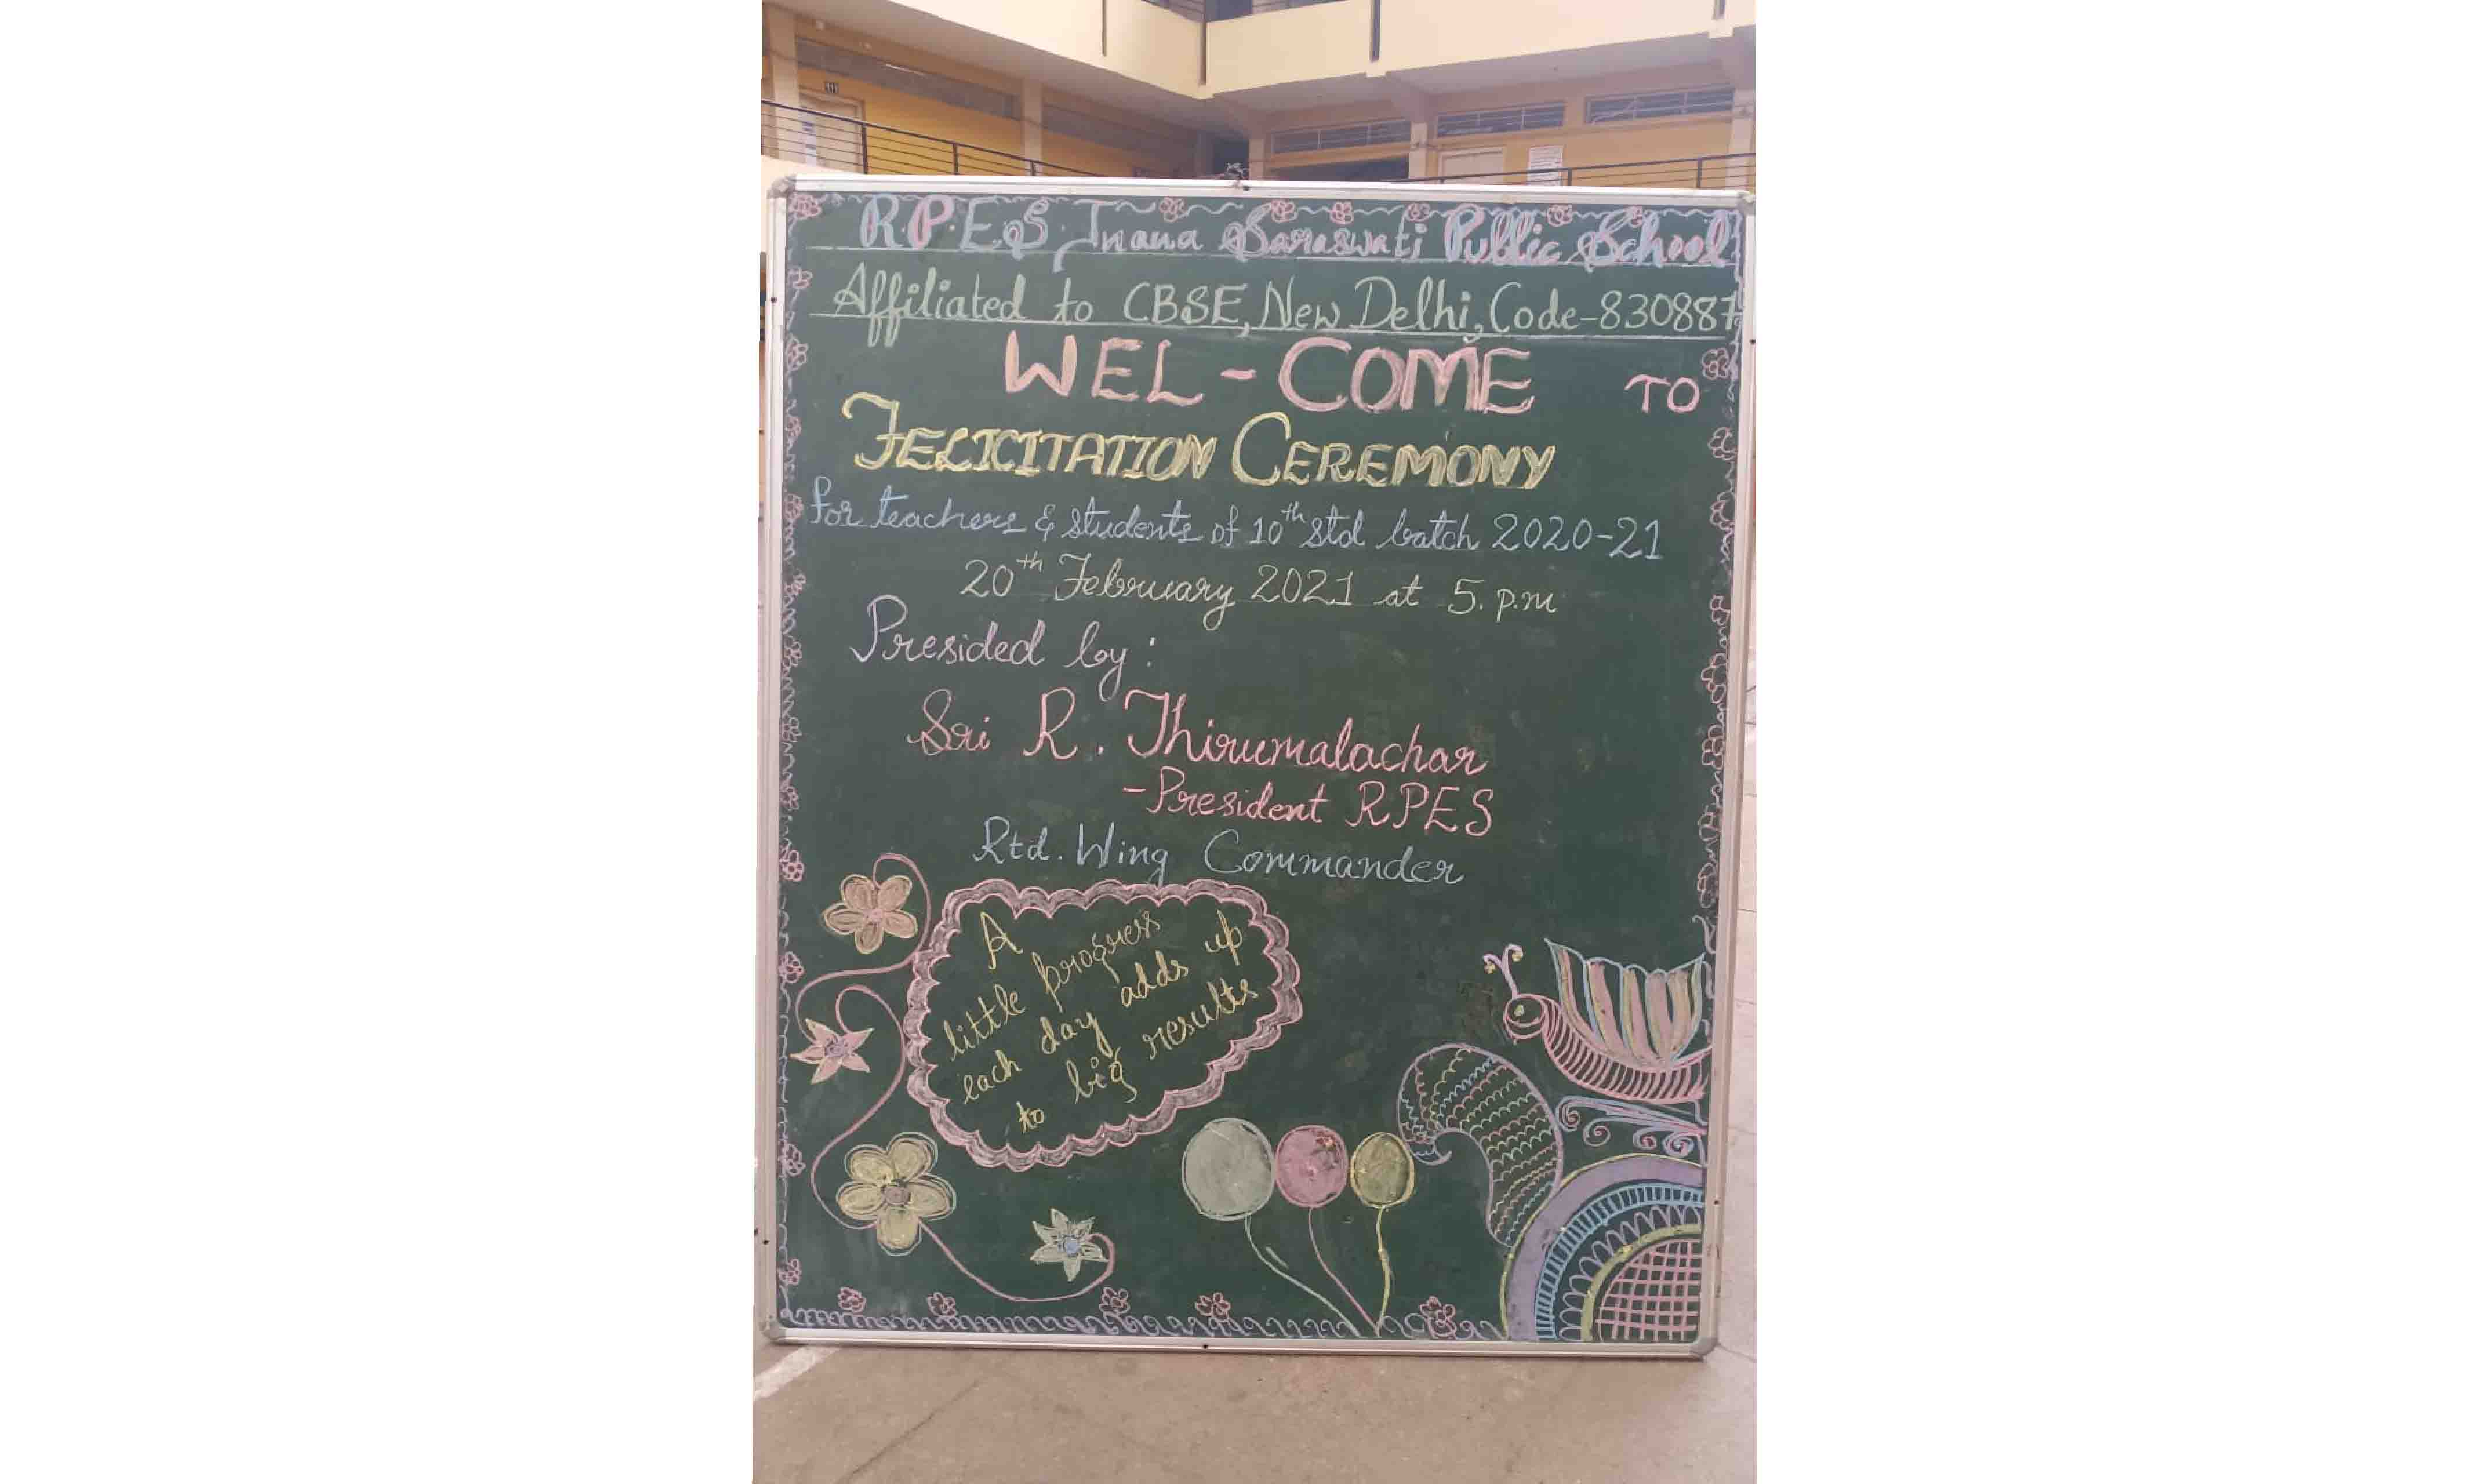 R.P.E.S Jnana Saraswati Public School
Affiliated to CBSE, New Delhi, Code-830887
WEL-COME TO
FELICITATION CEREMONY
for teachers & students of 10th std batch 2020-21
20th February 2021 at 5. p.m
Presided by:
Sri R. Thirumalachar
-President RPES
Rtd. Wing Commander
A
little progress
each day adds up
to big results